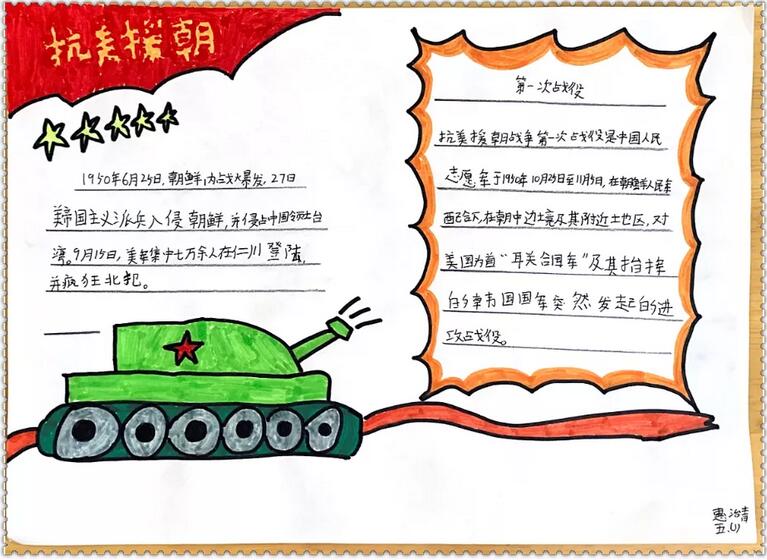 抗美援朝
1950年6月25日,朝鲜内战爆发,27日
美帝国主义派兵入侵朝鲜,并侵占中国领土台
湾。9月15日,美军集中七万余人在仁川登陆,
并疯狂北犯。
第一次战役
抗美援朝战争第一次战役是中国人民
志愿军于1950年10月25日至11月5日,在朝鲜人民军
配合下,在朝中边境及其附近土地区,对
美国为首“联合国军”及其指挥
的韩国国军突然发起的进
攻战役。
惠
五(1)